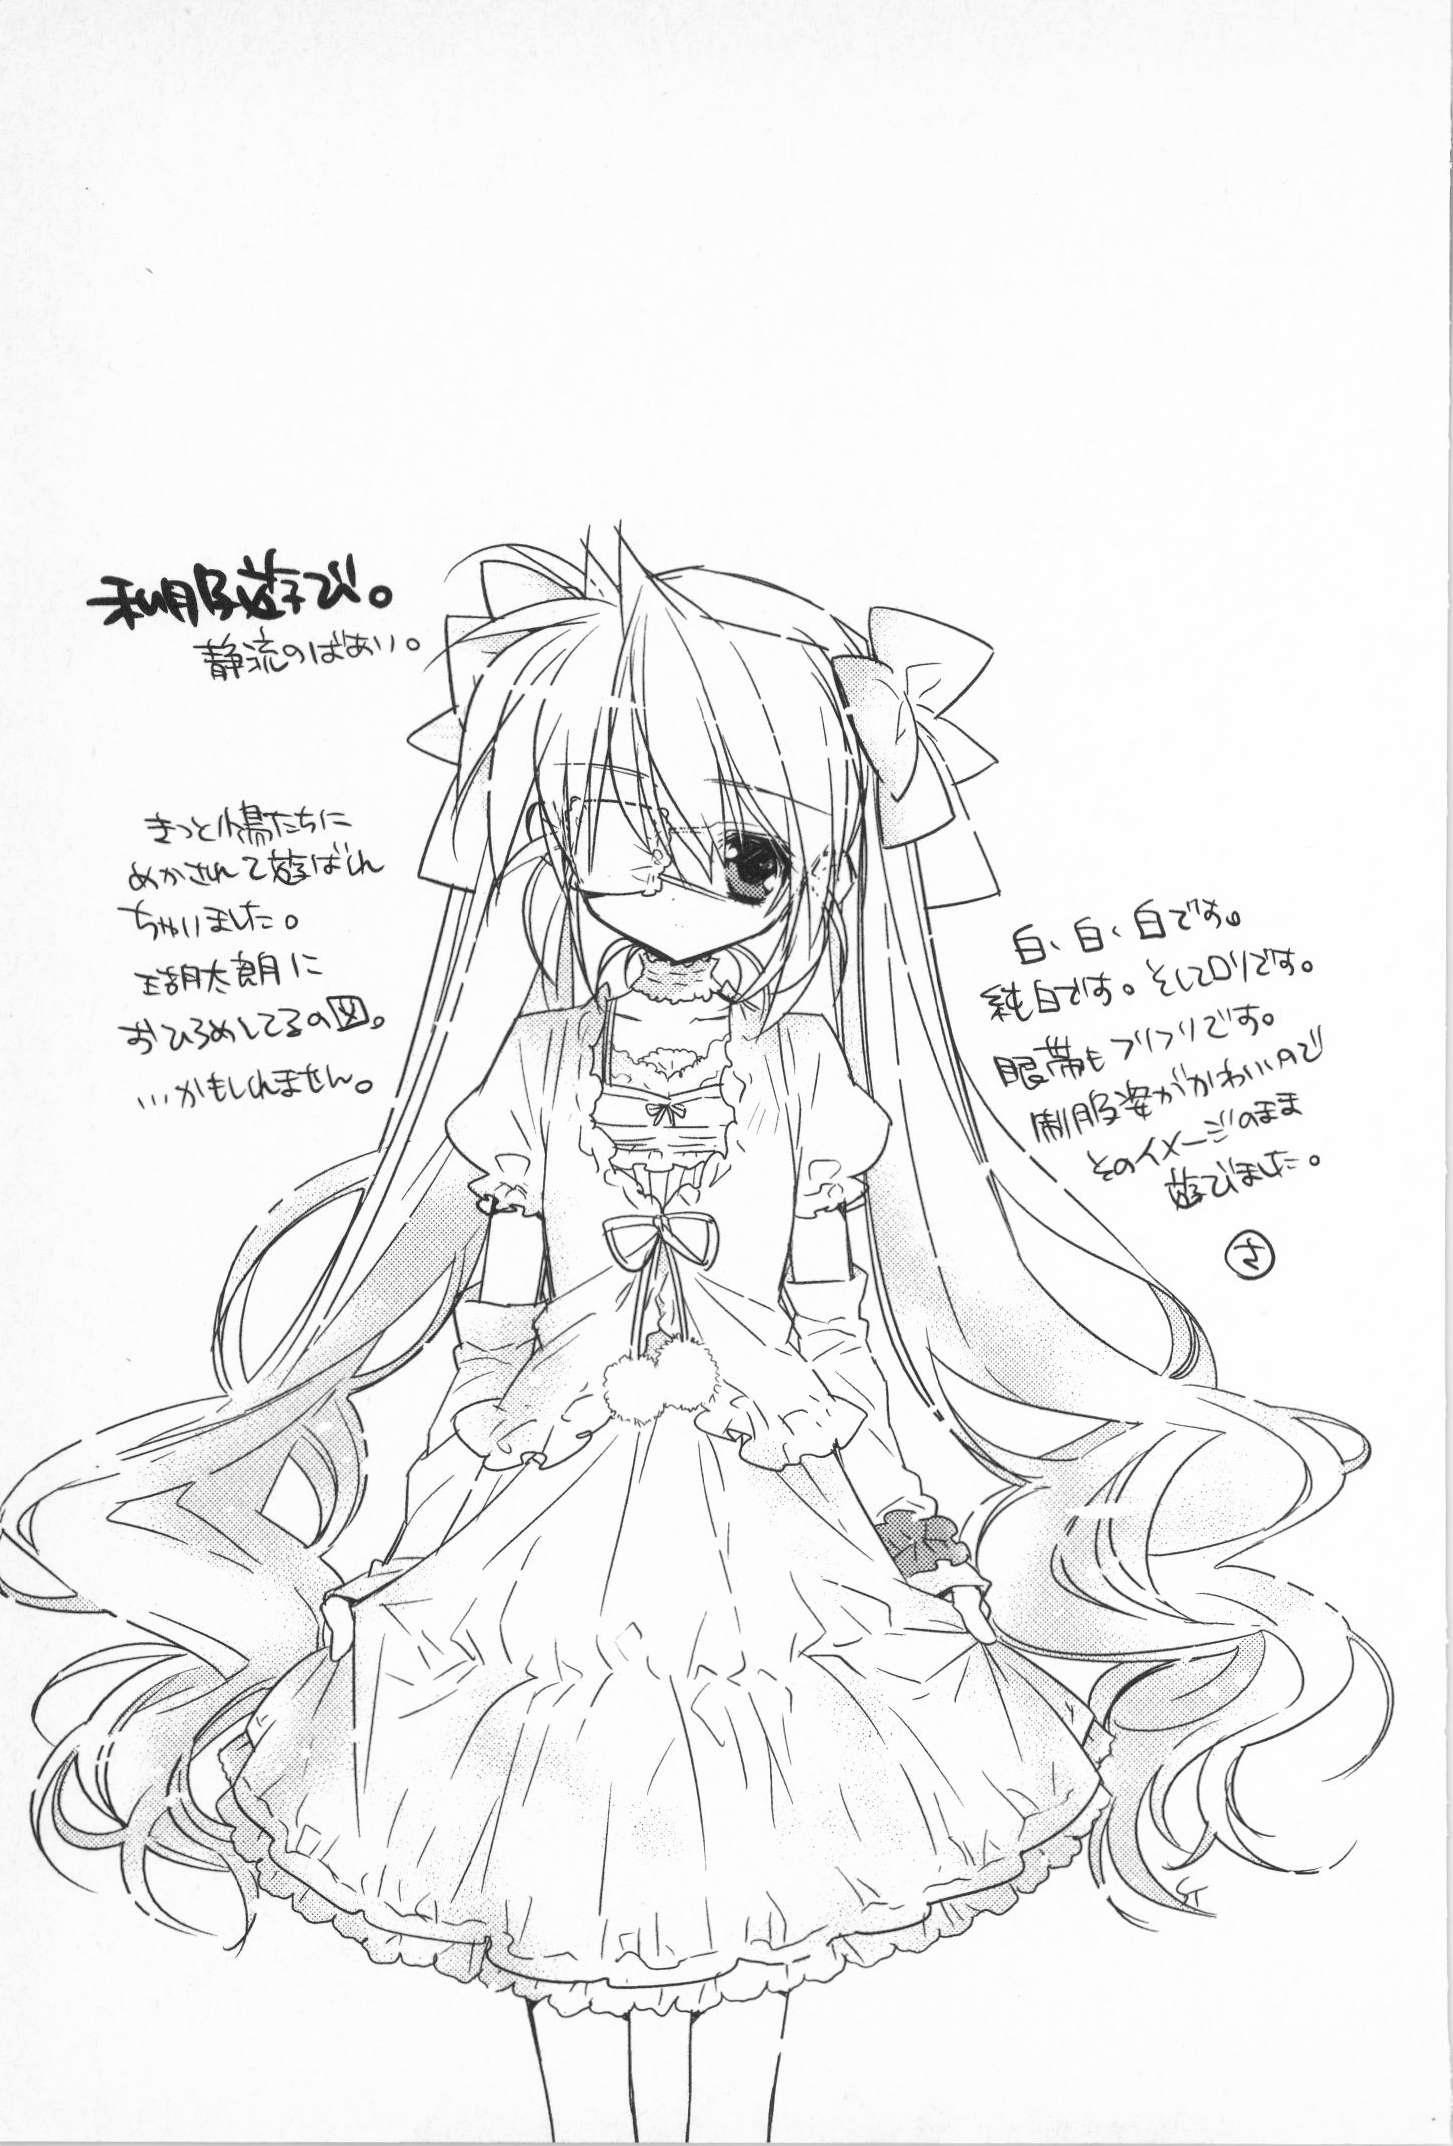 私服遊び。
静流のばあい。
きっと鳥たちに
めかされて遊ばれ
ちゃいました。
瑚太朗に
おひろめしてるの図。
…かもしれません。
白、白、白です。
純白です。そしてロリです。
眼帯もフリフリです。
制服姿がかわいいので
そのイメージのまま
遊びました。
さ